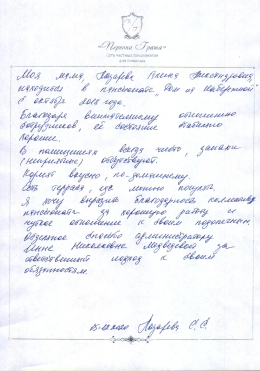 "Первая Грань"
СЕТЬ ЧАСТНЫХ ПАНСИОНАТОВ
ДЛЯ ПОЖИЛЫХ
Моя мама, Лазарева Александровна,
находится в пансионате "Дом на Набережной"
с октября 2018 года.
Благодаря внимательному отношению
сотрудников, её состояние стабильно
хорошее.
В помещениях всегда чисто, запахи
(неприятные) отсутствуют.
Кормят вкусно, по-домашнему.
Есть терраса, где можно погулять.
Я хочу выразить благодарность коллективу
пансионата за хорошую работу и
чуткое отношение к своим подопечным.
Отдельное спасибо администратору
Николаевне Медведевой за
ответственный подход к своим
обязанностям.
Лазарева С.С.